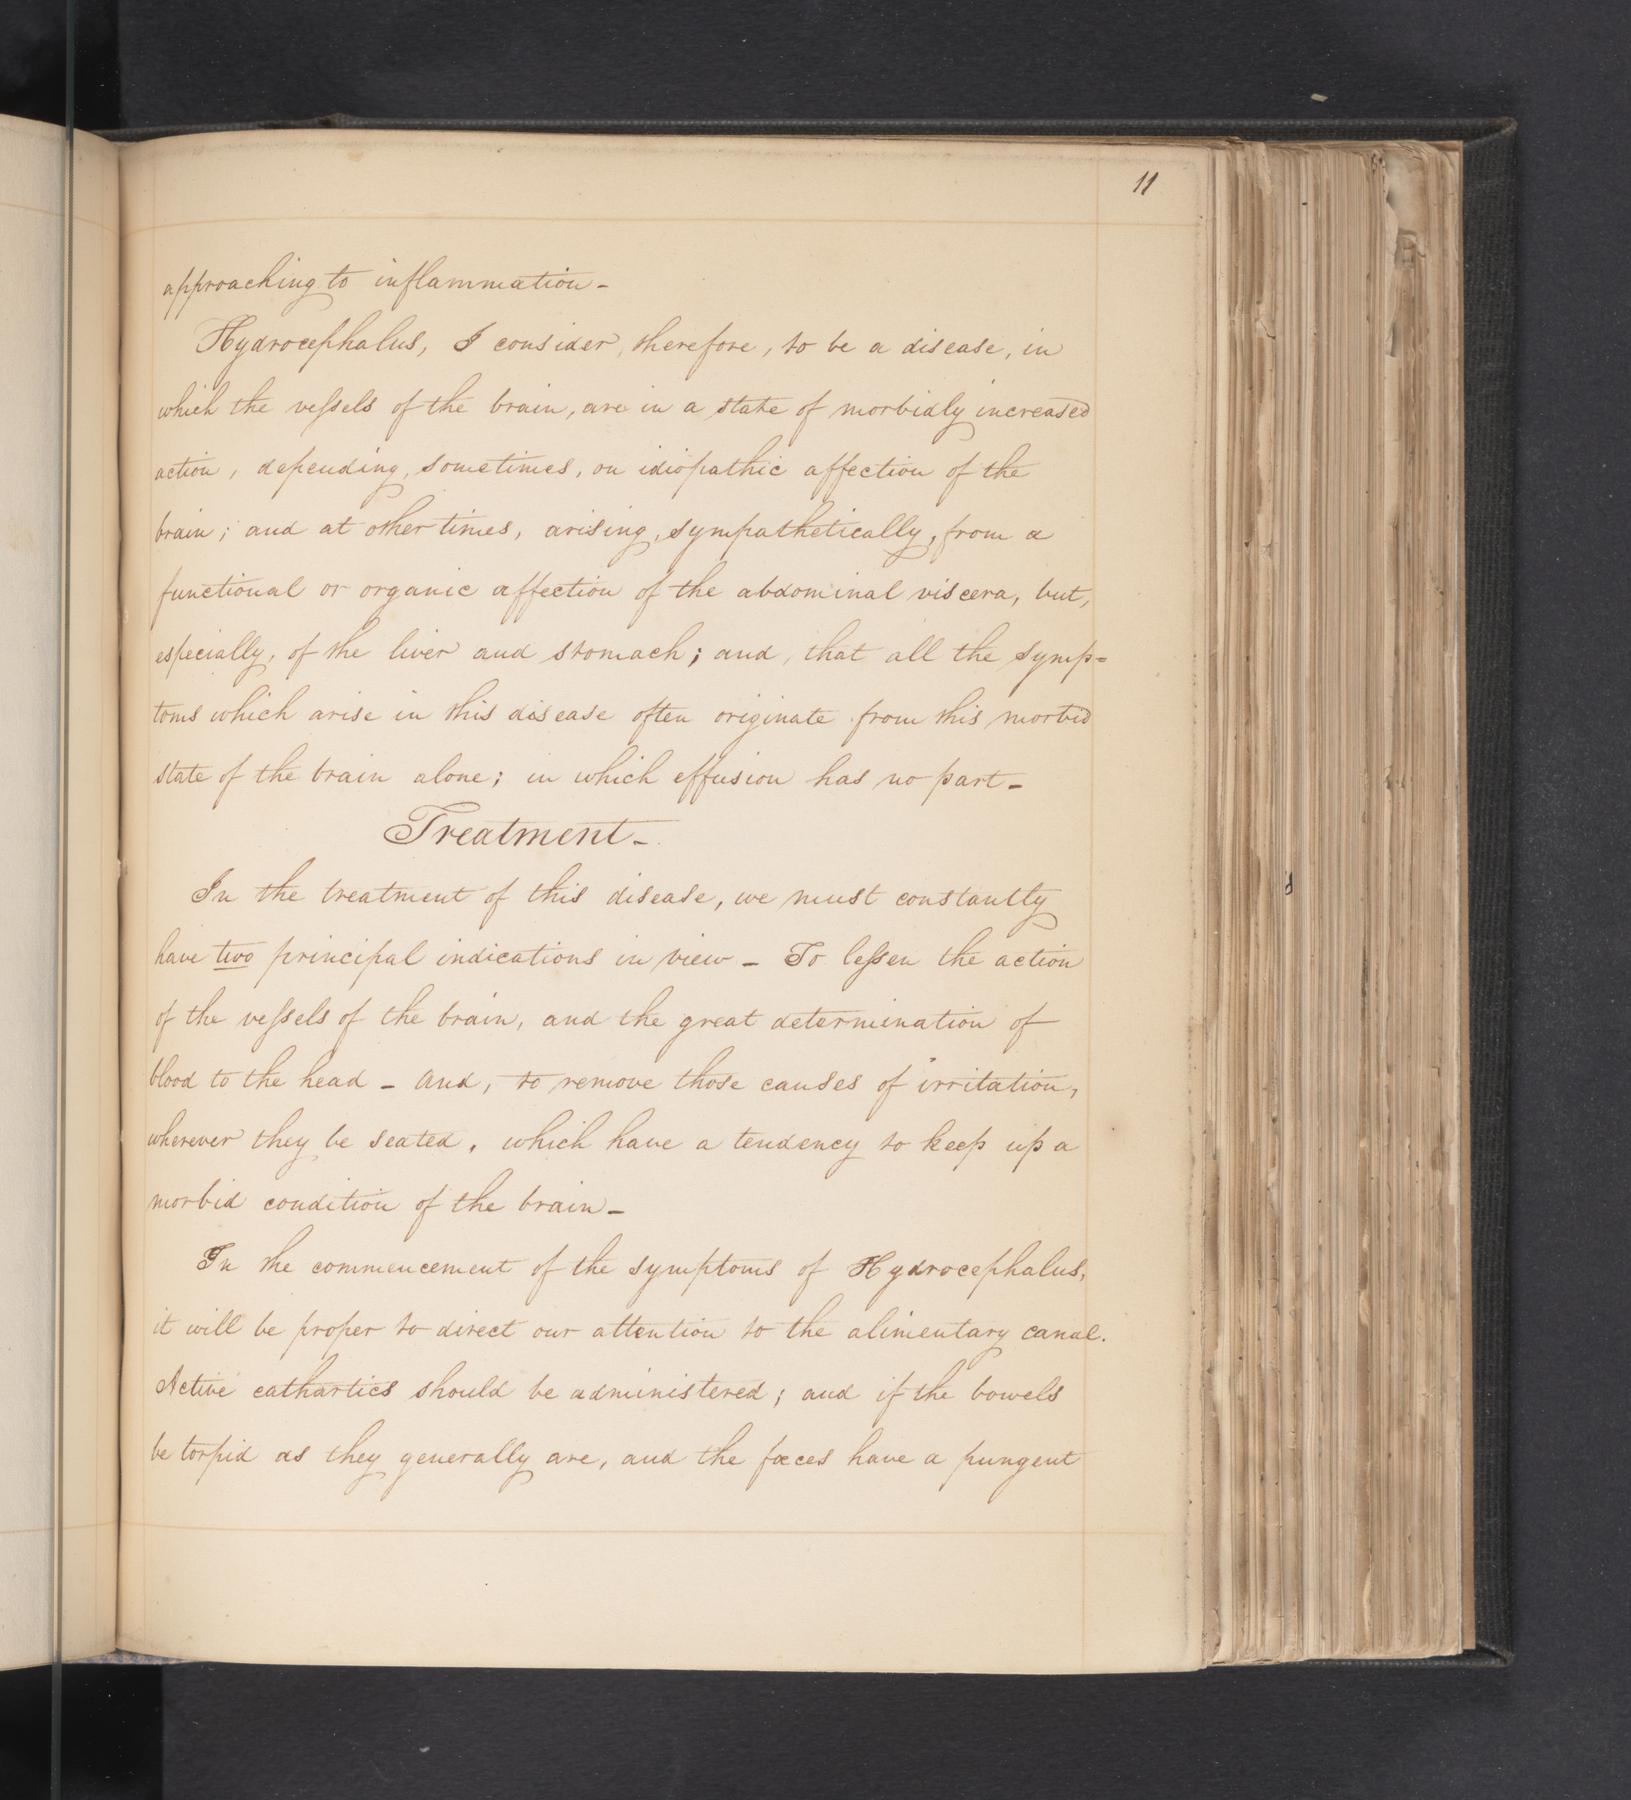 11
approaching to inflammation-
Hydrocephalus, I consider, therefore, to be a disease, in
which the veſsels of the brain, are in a state of morbidly increased
action, depending, sometimes, on idiopathic affection of the
brain; and at other times, arising, sympathetically, from a
functional or organic affection of the abdominal viscera, but,
especially, of the liver and stomach; and, that all the symp=
toms which arise in this disease often originate from this morbid
state of the brain alone; in which effusion has no part-
Treatment-
In the treatment of this disease, we must constantly
have two principal indications in view - To leſsen the action
of the veſsels of the brain, and the great determination of
blood to the head - and, to remove those causes of irritation,
wherever they be seated, which have a tendency to keep up a
morbid condition of the brain-
In the commencement of the symptoms of Hydrocephalus,
it will be proper to direct our attention to the alimentary canal.
Active cathartics should be administered; and if the bowels
be torpid as they generally are, and the fæces have a pungent